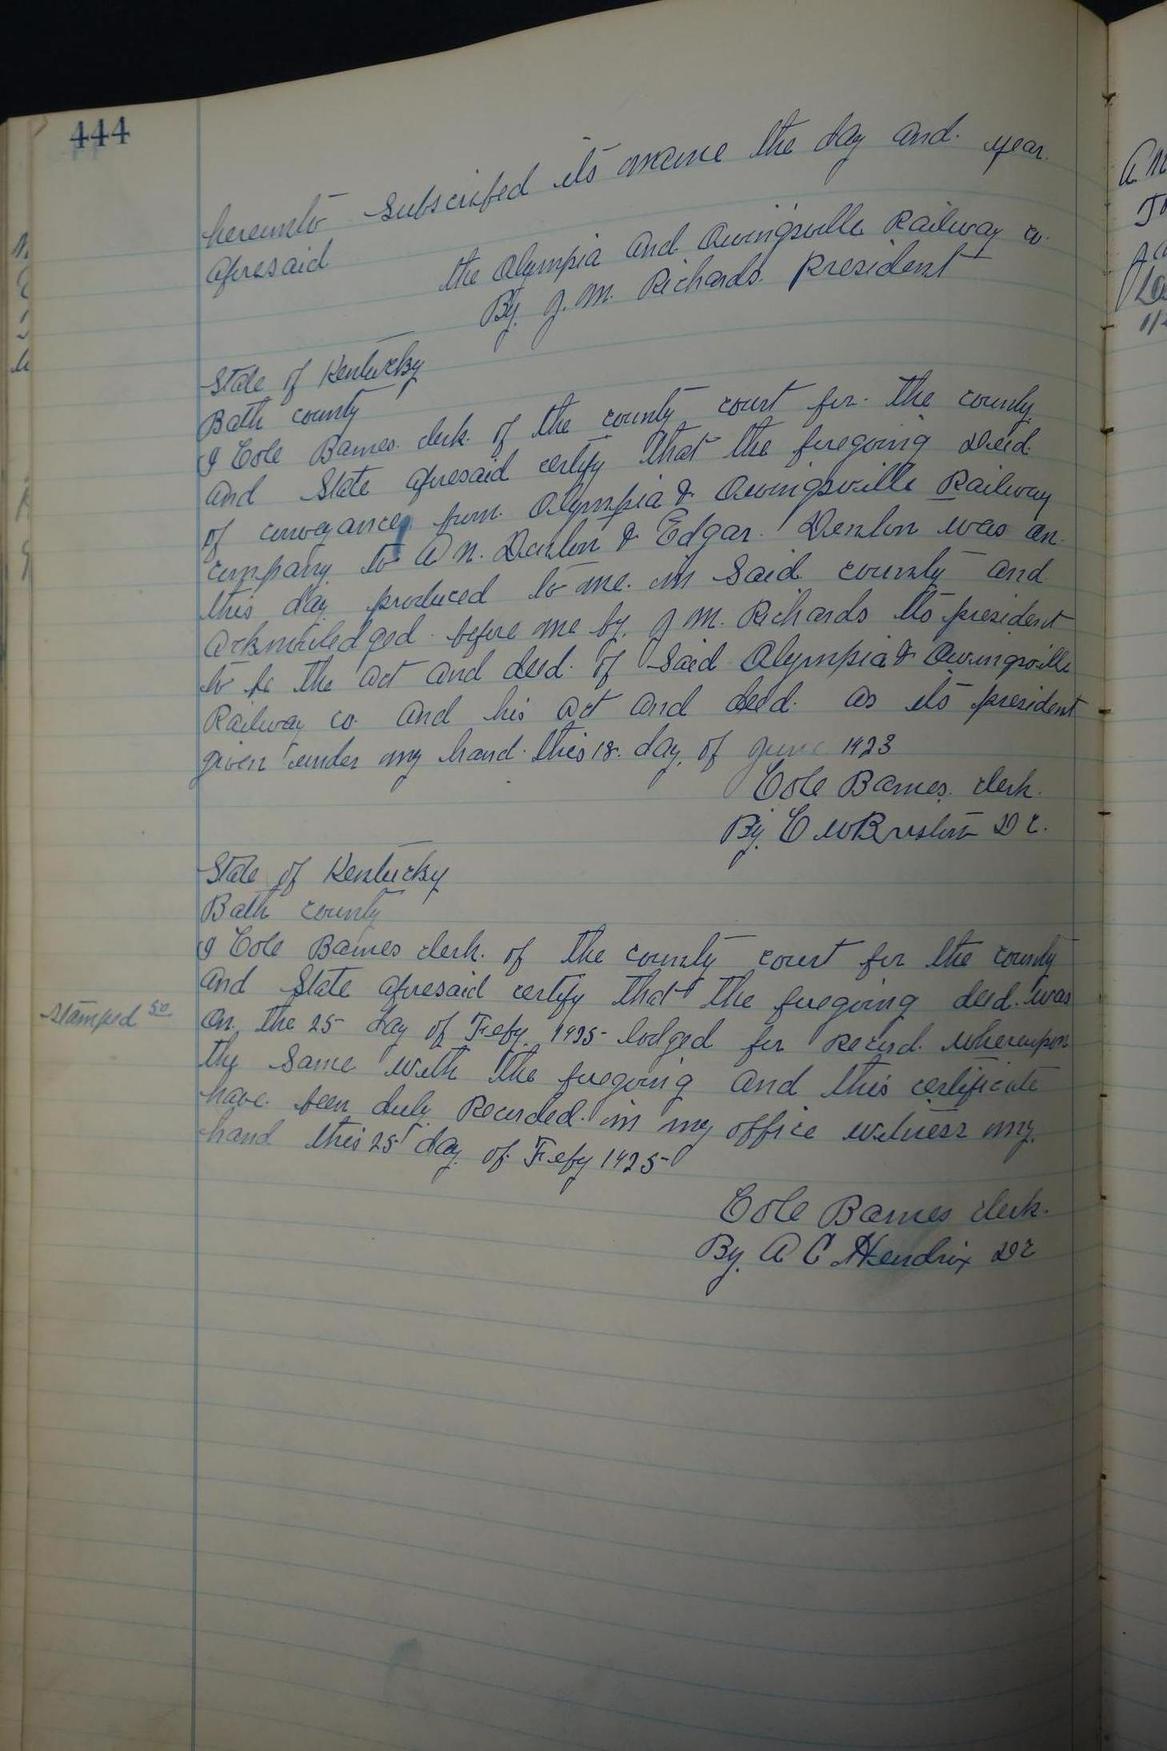 444
hereunto Subscribed its name the day and year
aforesaid
the Olympia and Owingsville Railway co.
By J. M. Richards. President
State of Kentucky
Bath county
I Cole Barnes clerk of the county court for the county
and State aforesaid certify that the foregoing Deed
of conveyance from Olympia & Owingsville Railway
company to A N. Denton & Edgar Denton was on
this day produced to me in Said county and
acknowledged before me by J M. Richards its president
to be the act and deed of Said Olympia & Owingsville
Railway co. and his act and deed as its president
given under my hand this 18 day of June 1923
Cole Barnes clerk.
By C W DC.
State of Kentucky
Bath county
I Cole Barnes clerk of the county court for the county
and State aforesaid certify that the foregoing deed was
Stamped 50
on the 25 day of Feby 1925 lodged for Record whereupon
the Same with the foregoing and this certificate
have been duly Recorded in my office witness my
hand this 25 day of Feby 1925
Cole Barnes clerk.
By A C Hendrix DC